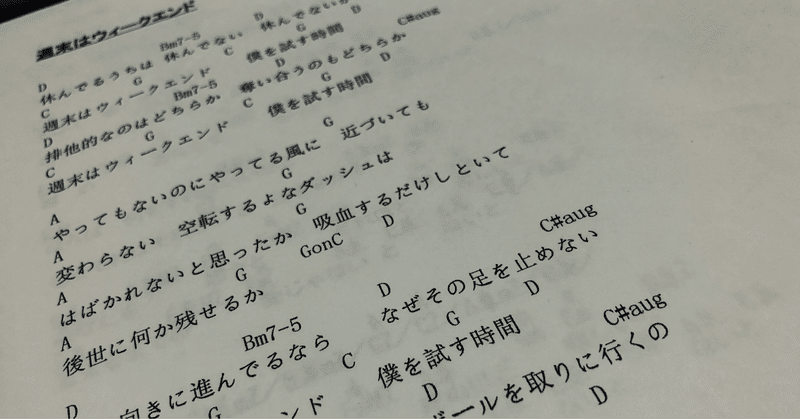 週末はウィークエンド
D Bm7-5 D
休んでるうちは 休んでない 休んでない
C G C G D
週末はウィークエンド 僕を試す時間
D Bm7-5 D C#aug
排他的なのはどちらか 奪い合うのもどちらか
C G C G D
週末はウィークエンド 僕を試す時間
A G
やってもないのにやってる風に 近づいても
A G
変わらない 空転するよなダッシュは
A G
はばかれないと思ったか 吸血するだけしといて
A G GonC D
後世に何か残せるか
D Bm7-5 D C#aug
向きに進んでるなら なぜその足を止めない
G C G D
ンド 僕を試す時間
D C#aug
ールを取りに行くの
D